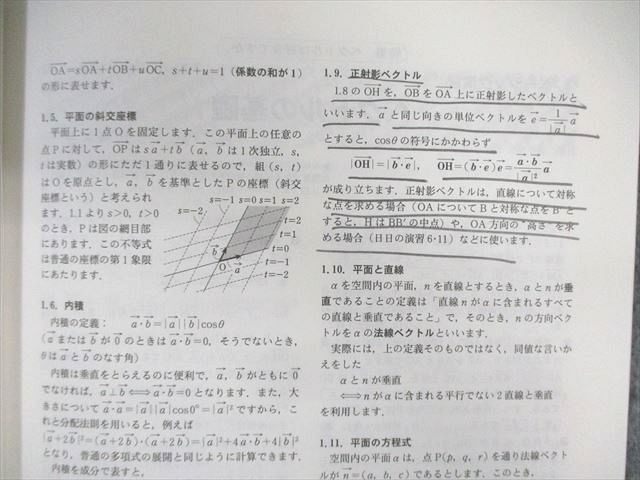 OA=sOA+tOB+uOC, s+t+u=1 (係数の和が1)
の形に表せます.
1.5. 平面の斜交座標
平面上に1点Oを固定します.この平面上の任意の
点Pに対して,OPはsa+tb (a, bは1次独立,s,
tは実数)の形にただ1通りに表せるので,組(s, t)
はOを原点とし,a, bを基準としたPの座標(斜交
座標という)と考えられ
ます.1.1よりs>0, t>0
のとき,Pは図の網目部
にあります.この不等式
は普通の座標の第1象限
にあたります.
s=-1 s=0 s=1 s=2
s=-2
t=2
t=1
t=0
t=-1
t=-2
b
O a
1.6. 内積
内積の定義: a·b=|a||b|cosθ
(aまたはbが0のときはa·b=0,そうでないとき,
θはaとbのなす角)
内積は垂直をとらえるのに便利で,a, bがともに0
でなければ,a⊥b⟺a·b=0となります.また,大
きさについてa·a=|a||a|cos0°=|a|²ですから,こ
れと分配法則を用いると,例えば
|a+2b|²=(a+2b)·(a+2b)=|a|²+4a·b+4|b|²
となり,普通の多項式の展開と同じように計算できます.
内積を成分で表すと,
1.9. 正射影ベクトル
1.8のOHを,OBをOA上に正射影したベクトルと
いいます.aと同じ向きの単位ベクトルをe=1/|a| a
とすると,cosθの符号にかかわらず
|OH|=|b·e|, OH=(b·e)e=a·b/|a|² a
が成り立ちます.正射影ベクトルは,直線について対称
な点を求める場合(OAについてBと対称な点をB′と
すると,HはBB′の中点)や,OA方向の"高さ"を求
める場合(日日の演習6·11)などに使います.
1.10. 平面と直線
αを空間内の平面,nを直線とするとき,αとnが垂
直であることの定義は「直線nがαに含まれるすべて
の直線と垂直であること」で,そのとき,nの方向ベク
トルをαの法線ベクトルといいます.
実際には,上の定義そのものではなく,同値な言いか
えをした
αとnが垂直
⟺nがαに含まれる平行でない2直線と垂直
を利用します.
1.11. 平面の方程式
空間内の平面αは,点P(p, q, r)を通り法線ベクト
ルがn=(a, b, c)であるとします.このとき,